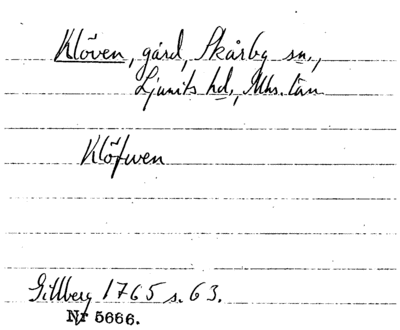 Klöven, gård, Skårby sn.,
Ljunits hd, Mhs. län
Klöfwen
Gillberg 1765 s. 63.
Nr 5666.